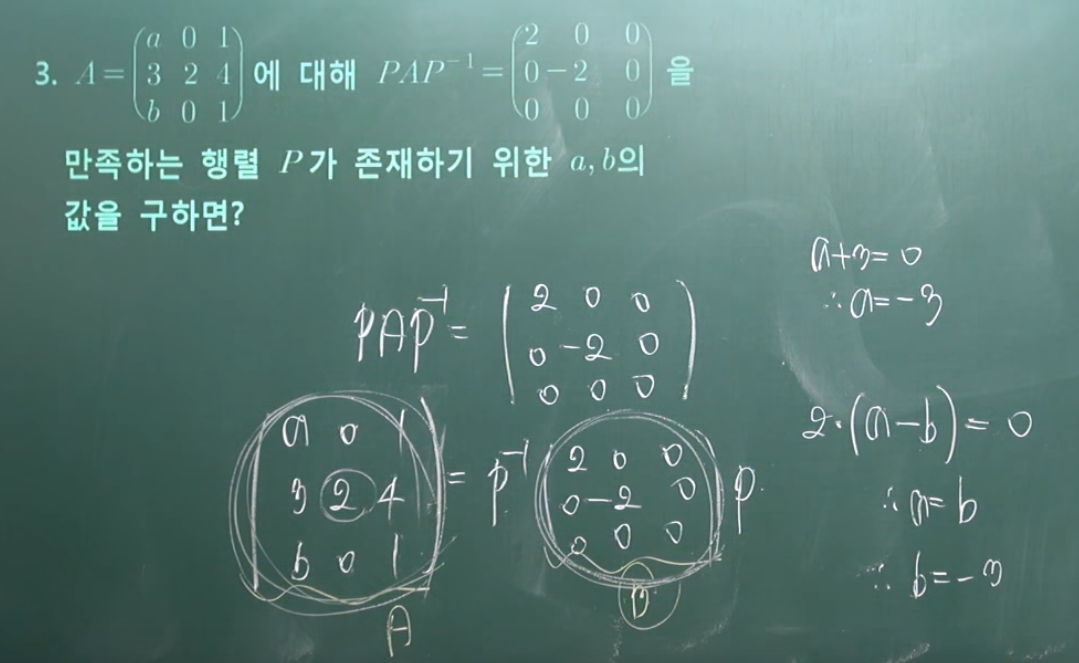 3. A = (a 0 1; 3 2 4; b 0 1) 에 대해 PAP⁻¹ = (2 0 0; 0 -2 0; 0 0 0) 을
만족하는 행렬 P가 존재하기 위한 a, b의
값을 구하면?
PAP⁻¹ = (2 0 0; 0 -2 0; 0 0 0)
(a 0 1; 3 2 4; b 0 1) = P⁻¹ (2 0 0; 0 -2 0; 0 0 0) P.
A
B
a+3=0
∴ a=-3
2·(a-b)=0
∴ a=b
∴ b=-3